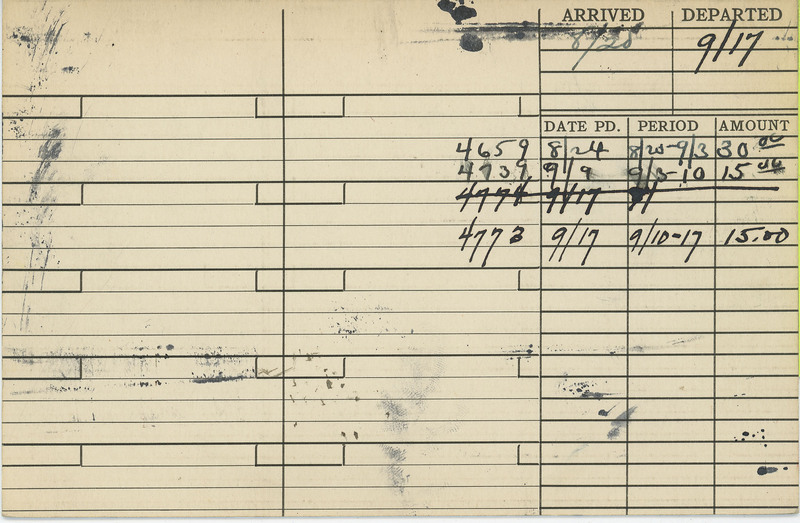 ARRIVED DEPARTED
8/20 9/17
DATE PD. PERIOD AMOUNT
4659 8/24 8/20-9/3 30.00
4739 9/9 9/3-10 15.00
4774 9/17 9/
4773 9/17 9/10-17 15.00